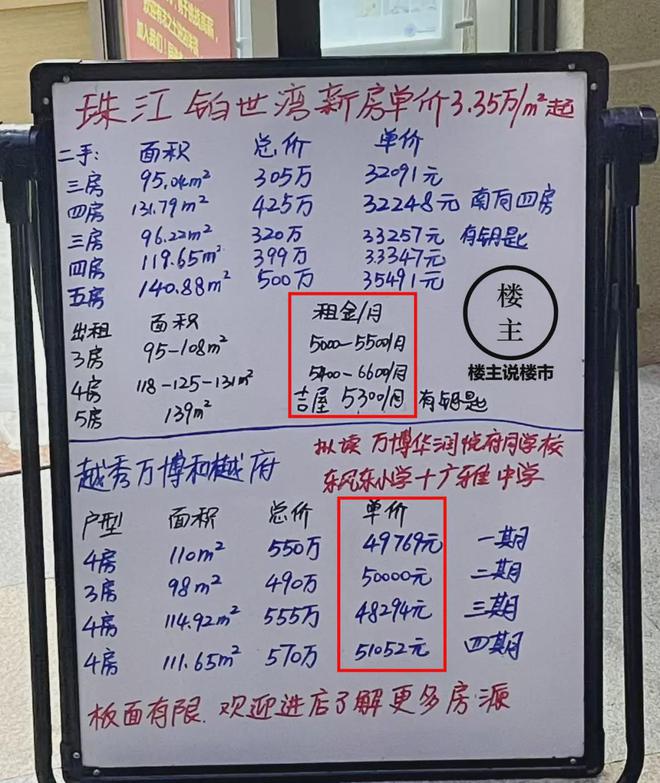 珠江铂世湾新房单价3.35万/m²起
二手: 面积 总价 单价
三房 95.04m² 305万 32091元
四房 131.79m² 425万 32248元 南向四房
三房 96.22m² 320万 33257元 有钥匙
四房 119.65m² 399万 33347元
五房 140.88m² 500万 35491元
楼主
楼主说楼市
出租 面积 租金/月
3房 95-108m² 5000-5500/月
4房 118-125-131m² 5400-6600/月
5房 139m² 吉屋 5300/月 有钥匙
越秀万博和樾府
拟读 万博华润悦府同学校
东风东小学+广雅中学
户型 面积 总价 单价
4房 110m² 550万 49769元 一期
3房 98m² 490万 50000元 二期
4房 114.92m² 555万 48294元 三期
4房 111.65m² 570万 51052元 四期
板面有限.欢迎进店了解更多房源